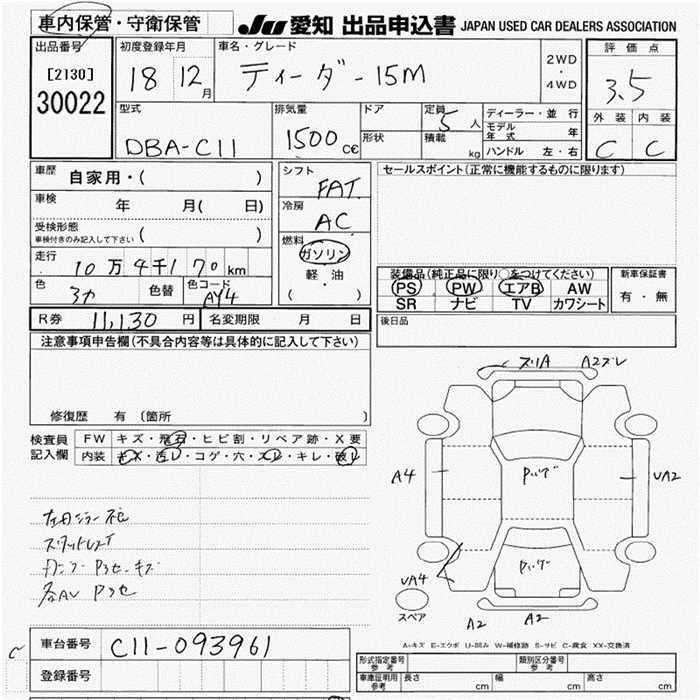 車内保管・守衛保管 JU 愛知 出品申込書 JAPAN USED CAR DEALERS ASSOCIATION
出品番号
[2130]
30022
初度登録年月
18 12月
車名・グレード
ティーダ-15M
2WD
・
4WD
評価点
3.5
外装 内装
C C
型式
DBA-C11
排気量
1500cc
ドア
形状
定員 5人
積載 kg
ディーラー・並行
モデル年式 年
ハンドル 左・右
車歴
自家用・( )
車検 年 月( 日)
受検形態
車検付きのみ記入して下さい ( )
走行
10万4千170km
色 色替 色コード AY4
R券 11,130円 名変期限 月 日
シフト
FAT
冷房
AC
燃料
ガソリン
・
軽・油
( )
セールスポイント(正常に機能するものに限ります)
装備品(純正品に限り○をつけてください)
PS PW エアB AW
SR ナビ TV カワシート
新車保証書
有・無
後日品
注意事項申告欄(不具合内容等は具体的に記入して下さい)
修復歴 有 〔箇所 〕
検査員
記入欄
FW キズ・飛石・ヒビ割・リペア跡・X要
内装 キズ・汚レ・コゲ・穴・スレ・キレ・破レ
ズリA A2ズレ
A4 UA2
UA4
スペア
A2 A2
A-キズ E-エクボ U-凹み W-補修跡 S-サビ C-腐食 XX-交換済
車台番号 C11-093961
登録番号
形式指定番号
参考
類別区分番号
参考
車庫証明用
参考
長さ cm 幅 cm 高さ cm